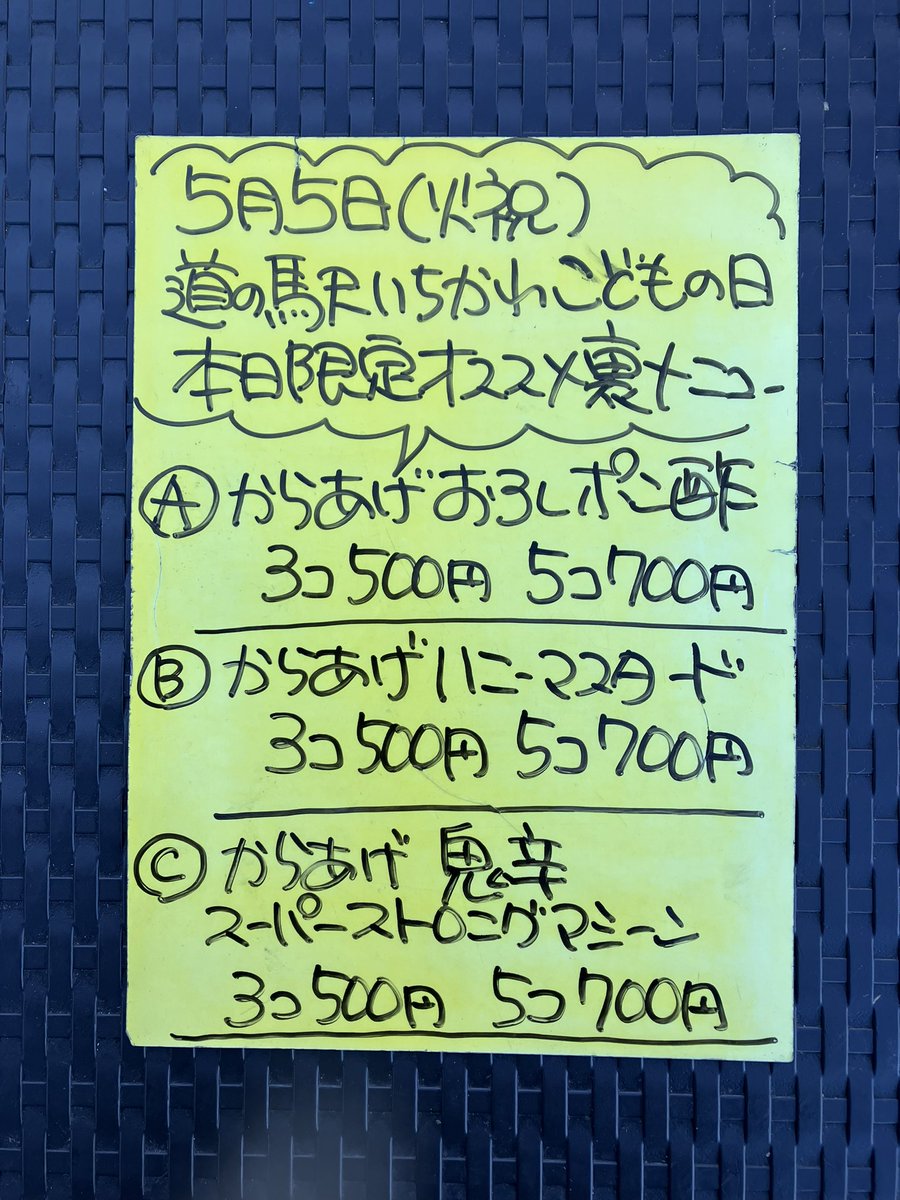 5月5日(火祝)
道の駅いちかわこどもの日
本日限定オススメ裏メニュー
Ⓐからあげおろしポン酢
3コ500円 5コ700円
Ⓑからあげハニーマスタード
3コ500円 5コ700円
Ⓒからあげ 鬼辛
スーパーストロングマシーン
3コ500円 5コ700円